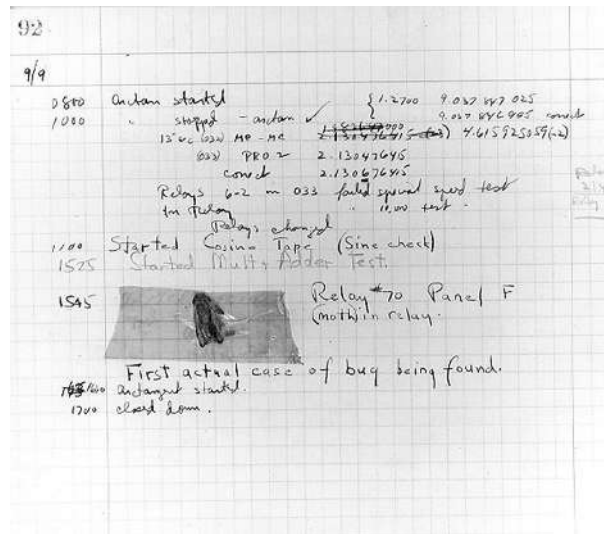 92
9/9
0800 antan started
1000 " stopped - antan ✓ { 1.2700 9.037 847 025
9.037 846 995 correct
13"uc (032) MP - MC 4.615925059(-2)
(033) PRO 2 2.130476415
correct 2.130676415
Relays 6-2 in 033 failed special speed test
in relay " 10.000 test .
Relays changed
1100 Started Cosine Tape (Sine check)
1525 Started Mult + Adder Test.
1545 Relay #70 Panel F
(moth) in relay.
First actual case of bug being found.
1630 antangent started.
1700 closed down.